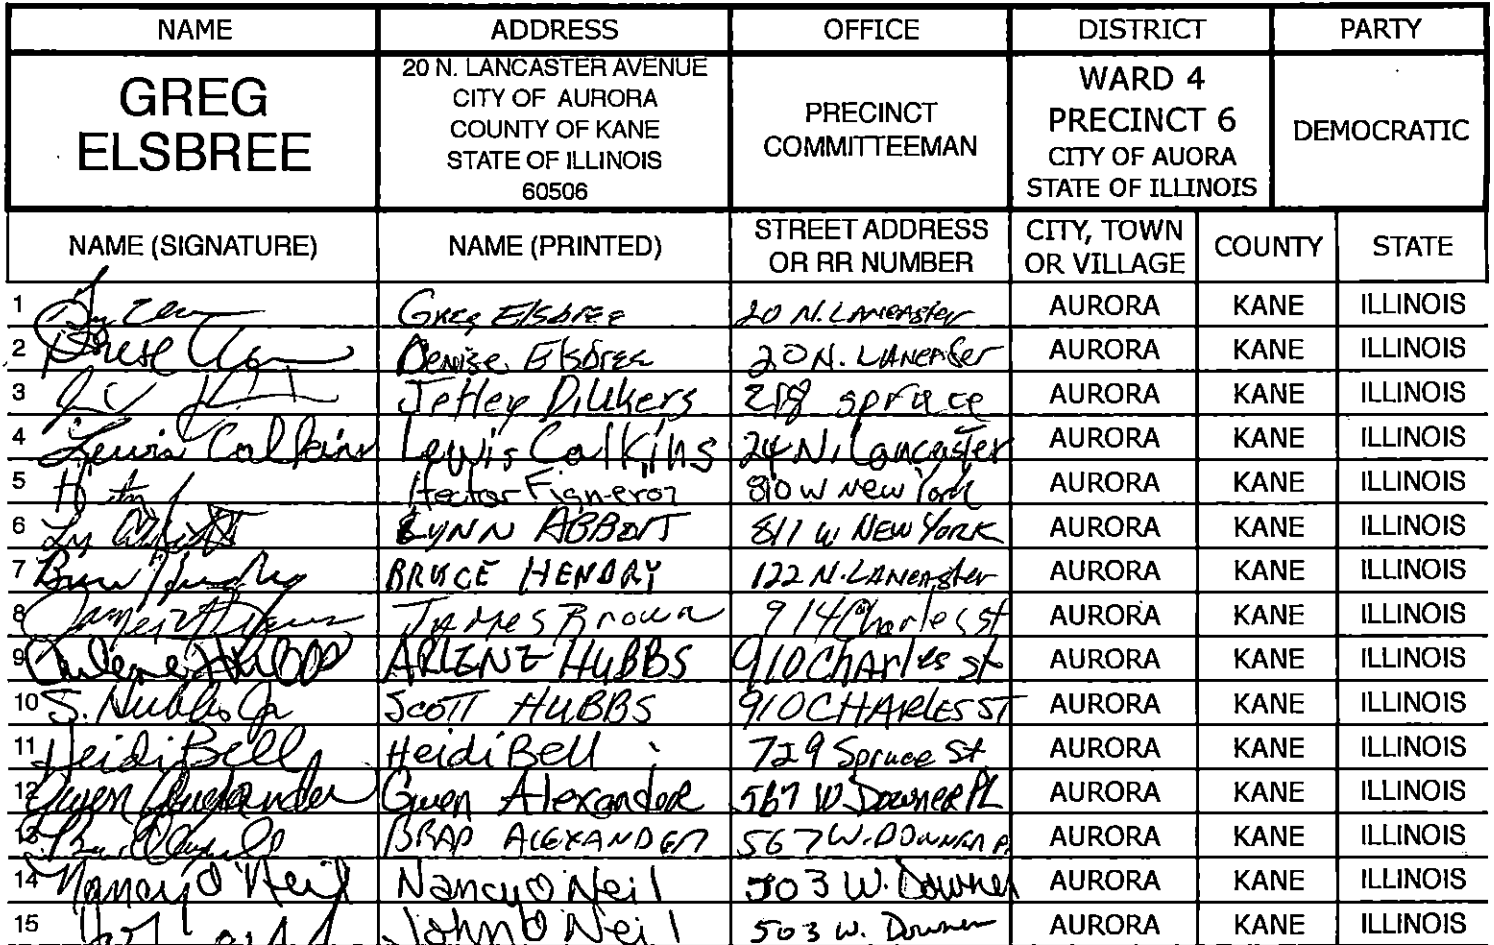 NAME ADDRESS OFFICE DISTRICT PARTY
GREG ELSBREE
20 N. LANCASTER AVENUE
CITY OF AURORA
COUNTY OF KANE
STATE OF ILLINOIS
60506
PRECINCT COMMITTEEMAN
WARD 4
PRECINCT 6
CITY OF AUORA
STATE OF ILLINOIS
DEMOCRATIC
NAME (SIGNATURE) NAME (PRINTED) STREET ADDRESS OR RR NUMBER CITY, TOWN OR VILLAGE COUNTY STATE
1 Greg Elsbree 20 N. Lancaster AURORA KANE ILLINOIS
2 Denise Elsbree 20 N. Lancaster AURORA KANE ILLINOIS
3 spruce AURORA KANE ILLINOIS
4 Lewis Calkins Lewis Calkins 24 N. Lancaster AURORA KANE ILLINOIS
5 Hector 810 W New York AURORA KANE ILLINOIS
6 LYNN ABBOTT 811 W NEW YORK AURORA KANE ILLINOIS
7 BRUCE HENDRY 122 N. LANCASTER AURORA KANE ILLINOIS
8 James Brown 914 Charles st AURORA KANE ILLINOIS
9 Arlene Hubbs ARLENE HUBBS 910 Charles st AURORA KANE ILLINOIS
10 S. Hubbs Jr SCOTT HUBBS 910 CHARLES ST AURORA KANE ILLINOIS
11 Heidi Bell Heidi Bell 729 Spruce St AURORA KANE ILLINOIS
12 Gwen Alexander Gwen Alexander 567 W Downer PL AURORA KANE ILLINOIS
13 BRAD ALEXANDER 567 W. DOWNER P. AURORA KANE ILLINOIS
14 Nancy O'Neil Nancy O'Neil 503 W. Downer AURORA KANE ILLINOIS
15 John O'Neil 503 W. Downer AURORA KANE ILLINOIS